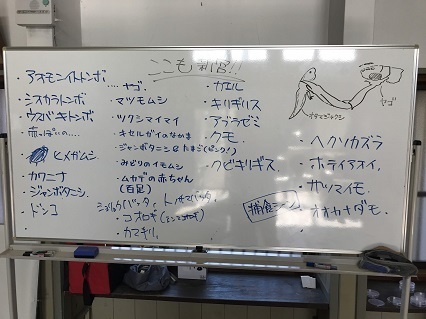 ・アオモンイトトンボ
・シオカラトンボ
・ウスバキトンボ
赤っぽいの....
ヒメガムシ
・カワニナ
・ジャンボタニシ
・ドンコ
.... ヤゴ
・マツモムシ
・ツクシマイマイ
・キセルガイのなかま
・ジャンボタニシのたまご(ピンク!)
・みどりのイモムシ
・ムカデの赤ちゃん
・コオロギ
・カマキリ
・カエル
・キリギリス
・アブラゼミ
・クモ
・クビキリギス
捕食シーン
オタマジャクシ
ヤゴ
・ヘクソカズラ
・ホテイアオイ
・サツマイモ
・オオカナダモ